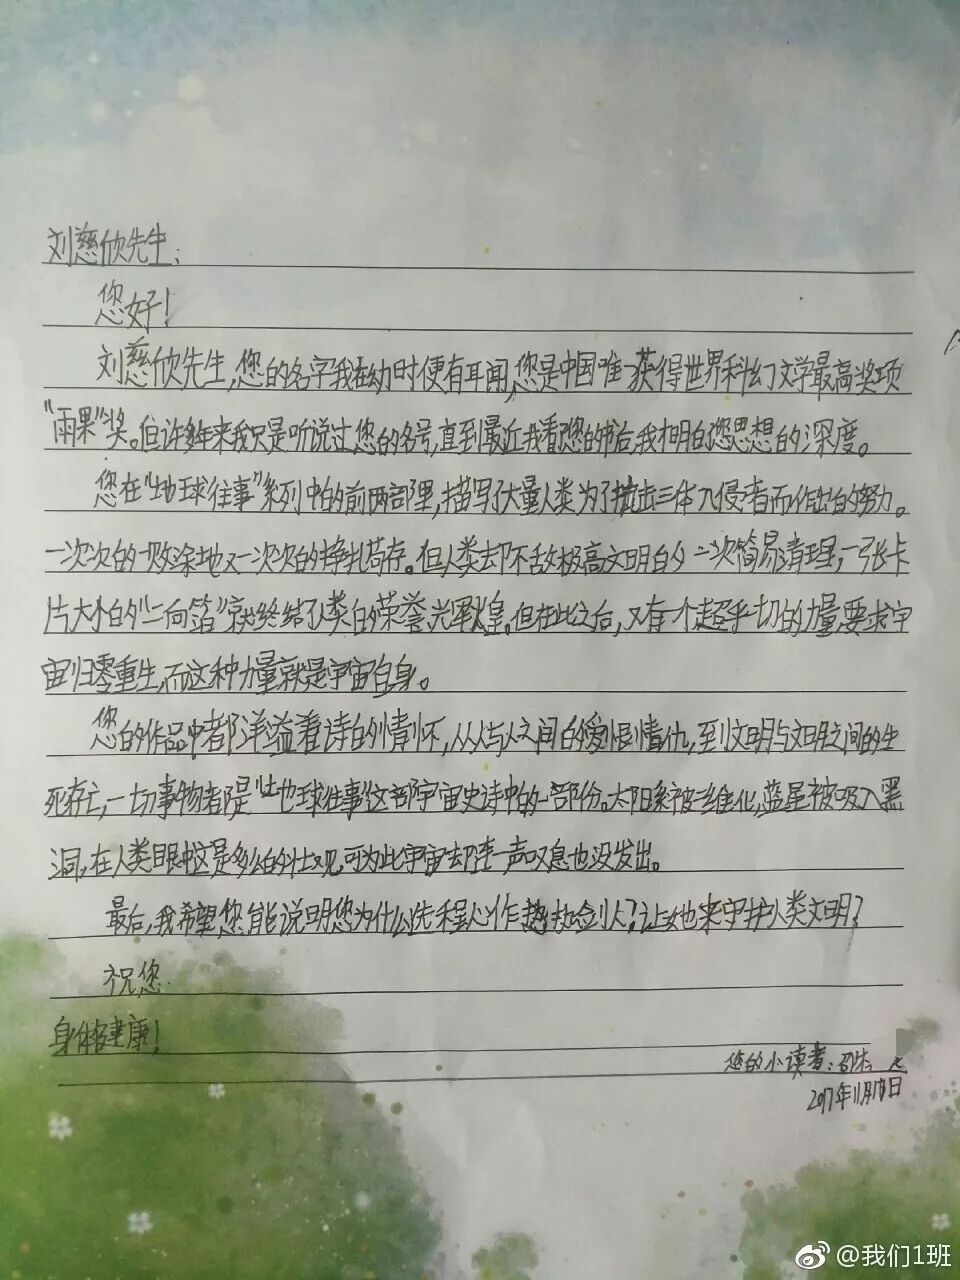 刘慈欣先生:
您好!
刘慈欣先生,您的名字我在幼时便有耳闻,您是中国唯一获得世界科幻文学最高奖项
“雨果”奖。但许多年来我只是听说过您的名号,直到最近我看您的书后,我才明白您思想的深度。
您在“地球往事”系列中的前两部里,描写了大量人类为了抗击三体入侵者而作出的努力。
一次次的一败涂地又一次次的挣扎苟存。但人类却不敌极高文明的一次简易清理,一张卡
片大小的“二向箔”就终结了人类的荣誉、光辉、煌。但在此之后,又有一个超乎一切的力量要求宇
宙归零重生,而这种力量就是宇宙自身。
您的作品中都洋溢着诗的情怀,从人与人之间的爱恨情仇,到文明与文明之间的生
死存亡,一切事物都是“地球往事”这部宇宙史诗中的一部份。太阳系被二维化,蓝星被吸入黑
洞,在人类眼中这是多么的壮观,可为此宇宙却连一声叹息也没发出。
最后,我希望您能说明您为什么选程心作执剑人?让她来守护人类文明?
祝您
身体健康!
您的小读者:
2017年11月18日
@我们1班